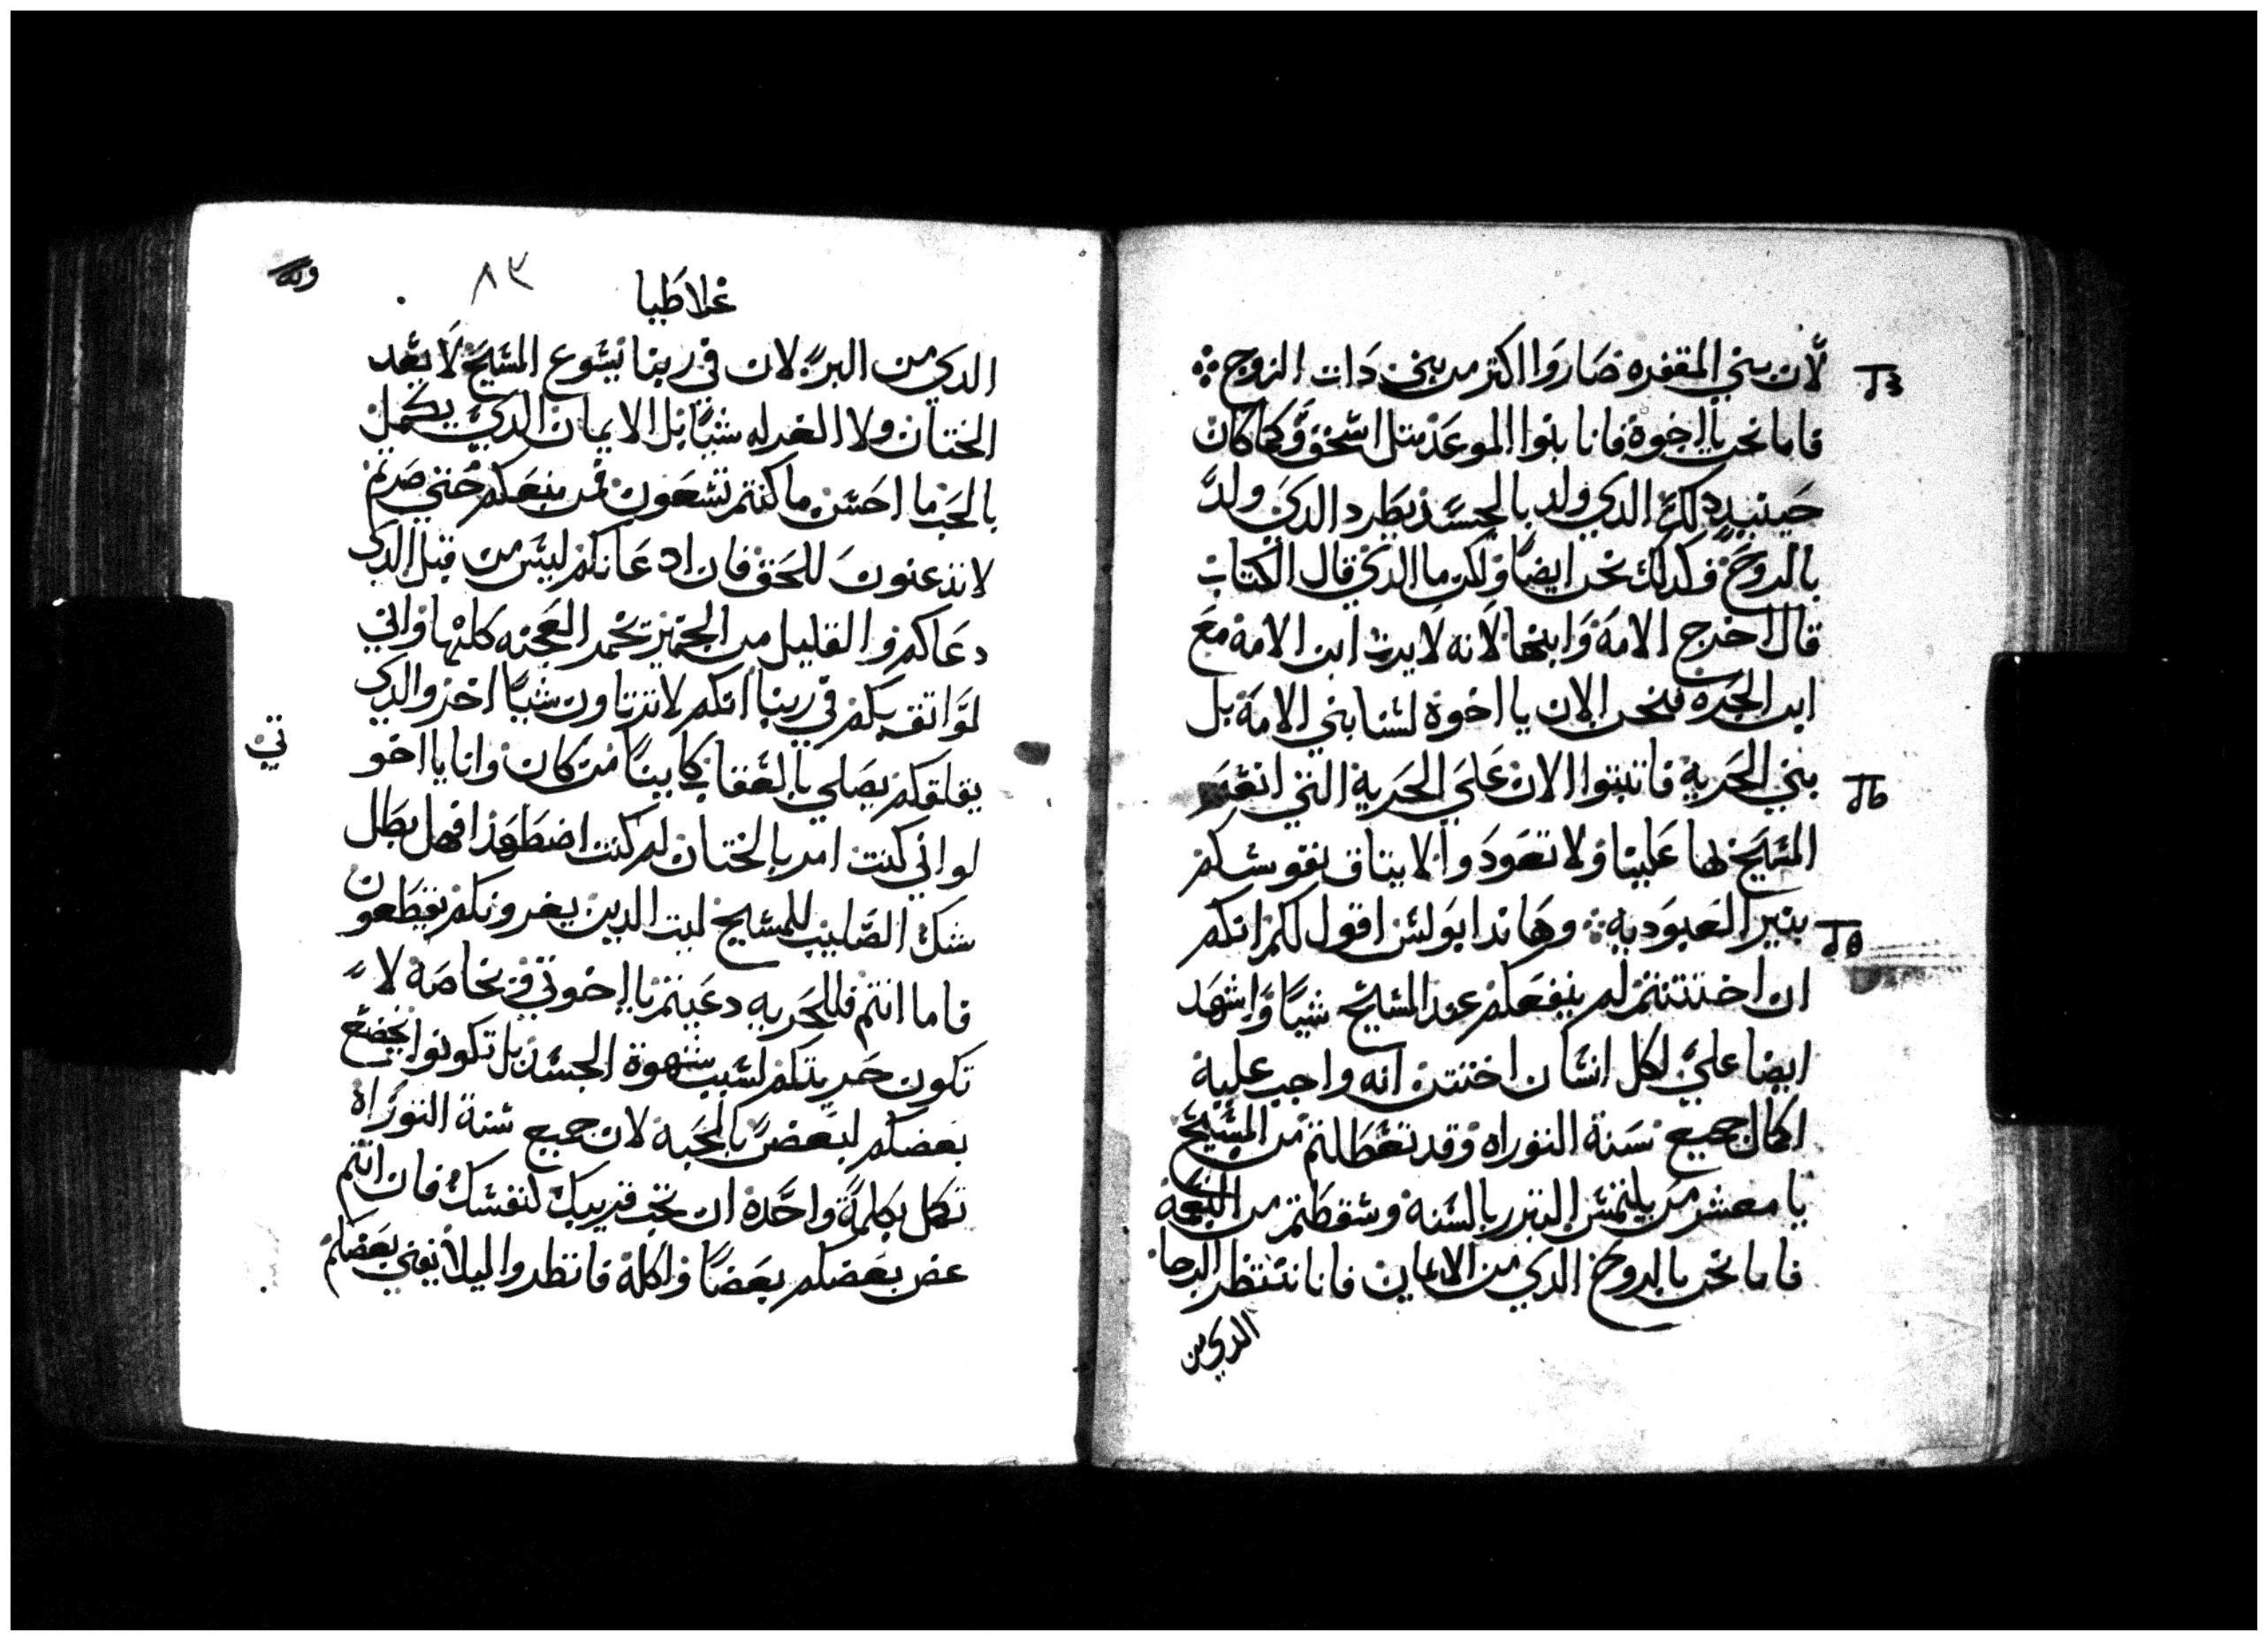 لان بني المقفره صاروا اكتر من بني دات الزوج
فاما نحن يا اخوة فانا بنوا الموعد متل اسحق وكما كان
حينيد دلك الدي ولد بالجسد يطرد الدي ولد
بالروح فكدلك نحن ايضا ولكن ما الدي قال الكتاب
قال اخرج الامة وابنها لانه لا يرت ابن الامة مع
ابن الحره فنحن الان يا اخوة لسنا بني الامة بل
بني الحرية فاتبتوا الان علي الحرية التي انعم
المسيح لها علينا ولا تعودوا الا يتاق نفوسكم
بنير العبودية وهاندا بولس اقول لكم انكم
ان اختتنتم لم ينفعكم عند المسيح شيا واشهد
ايضا علي كل انسان اختتن انه واجب عليه
اكمال جميع سنة التوراه وقد تعطلتم من المسيح
يا معشر من يلتمس التبرر بالسنة وسقطتم من النعمة
فاما نحن بالروح الدي من الايمان فانا ننتظر الرجا
الدي من
غلاطيا
٨٣
الدي من البر لان في ربنا يسوع المسيح لا يعد
الختان ولا الغرله شيا بل الايمان الدي يكمل
بالحب ما احسن ما كنتم تسعون فمن منعكم حتي صرتم
لا تدعنون للحق فان ادعانكم ليس من قبل الدي
دعاكم والقليل من الخمير تخمر العجنه كلها واني
لواتق بكم في ربنا انكم لا ترتاون شيا اخر والدي
يقلقكم يصلي بالعقاب كاينا من كان وانا يا اخو
تي
لو اني كنت امر بالختان لم كنت اضطهد افهل بطل
شك الصليب للمسيح ليت الدين يغرونكم يقطعون
فاما انتم فللحريه دعيتم يا اخوتي وبخاصة لا
تكون حريتكم لسبب شهوة الجسد بل تكونوا يخضع
بعضكم لبعض بالمحبة لان جميع سنة التوراه
تكمل بكلمة واحدة ان تحب قريبك كنفسك فان انتم
عض بعضكم بعضا واكله فانظروا ليلا يفني بعضكم